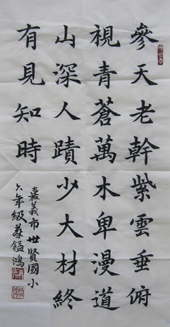 參天老幹紫雲垂俯
視青蒼萬木卑漫道
山深人蹟少大材終
有見知時
嘉義市世賢國小
六年級蔡鎰鴻